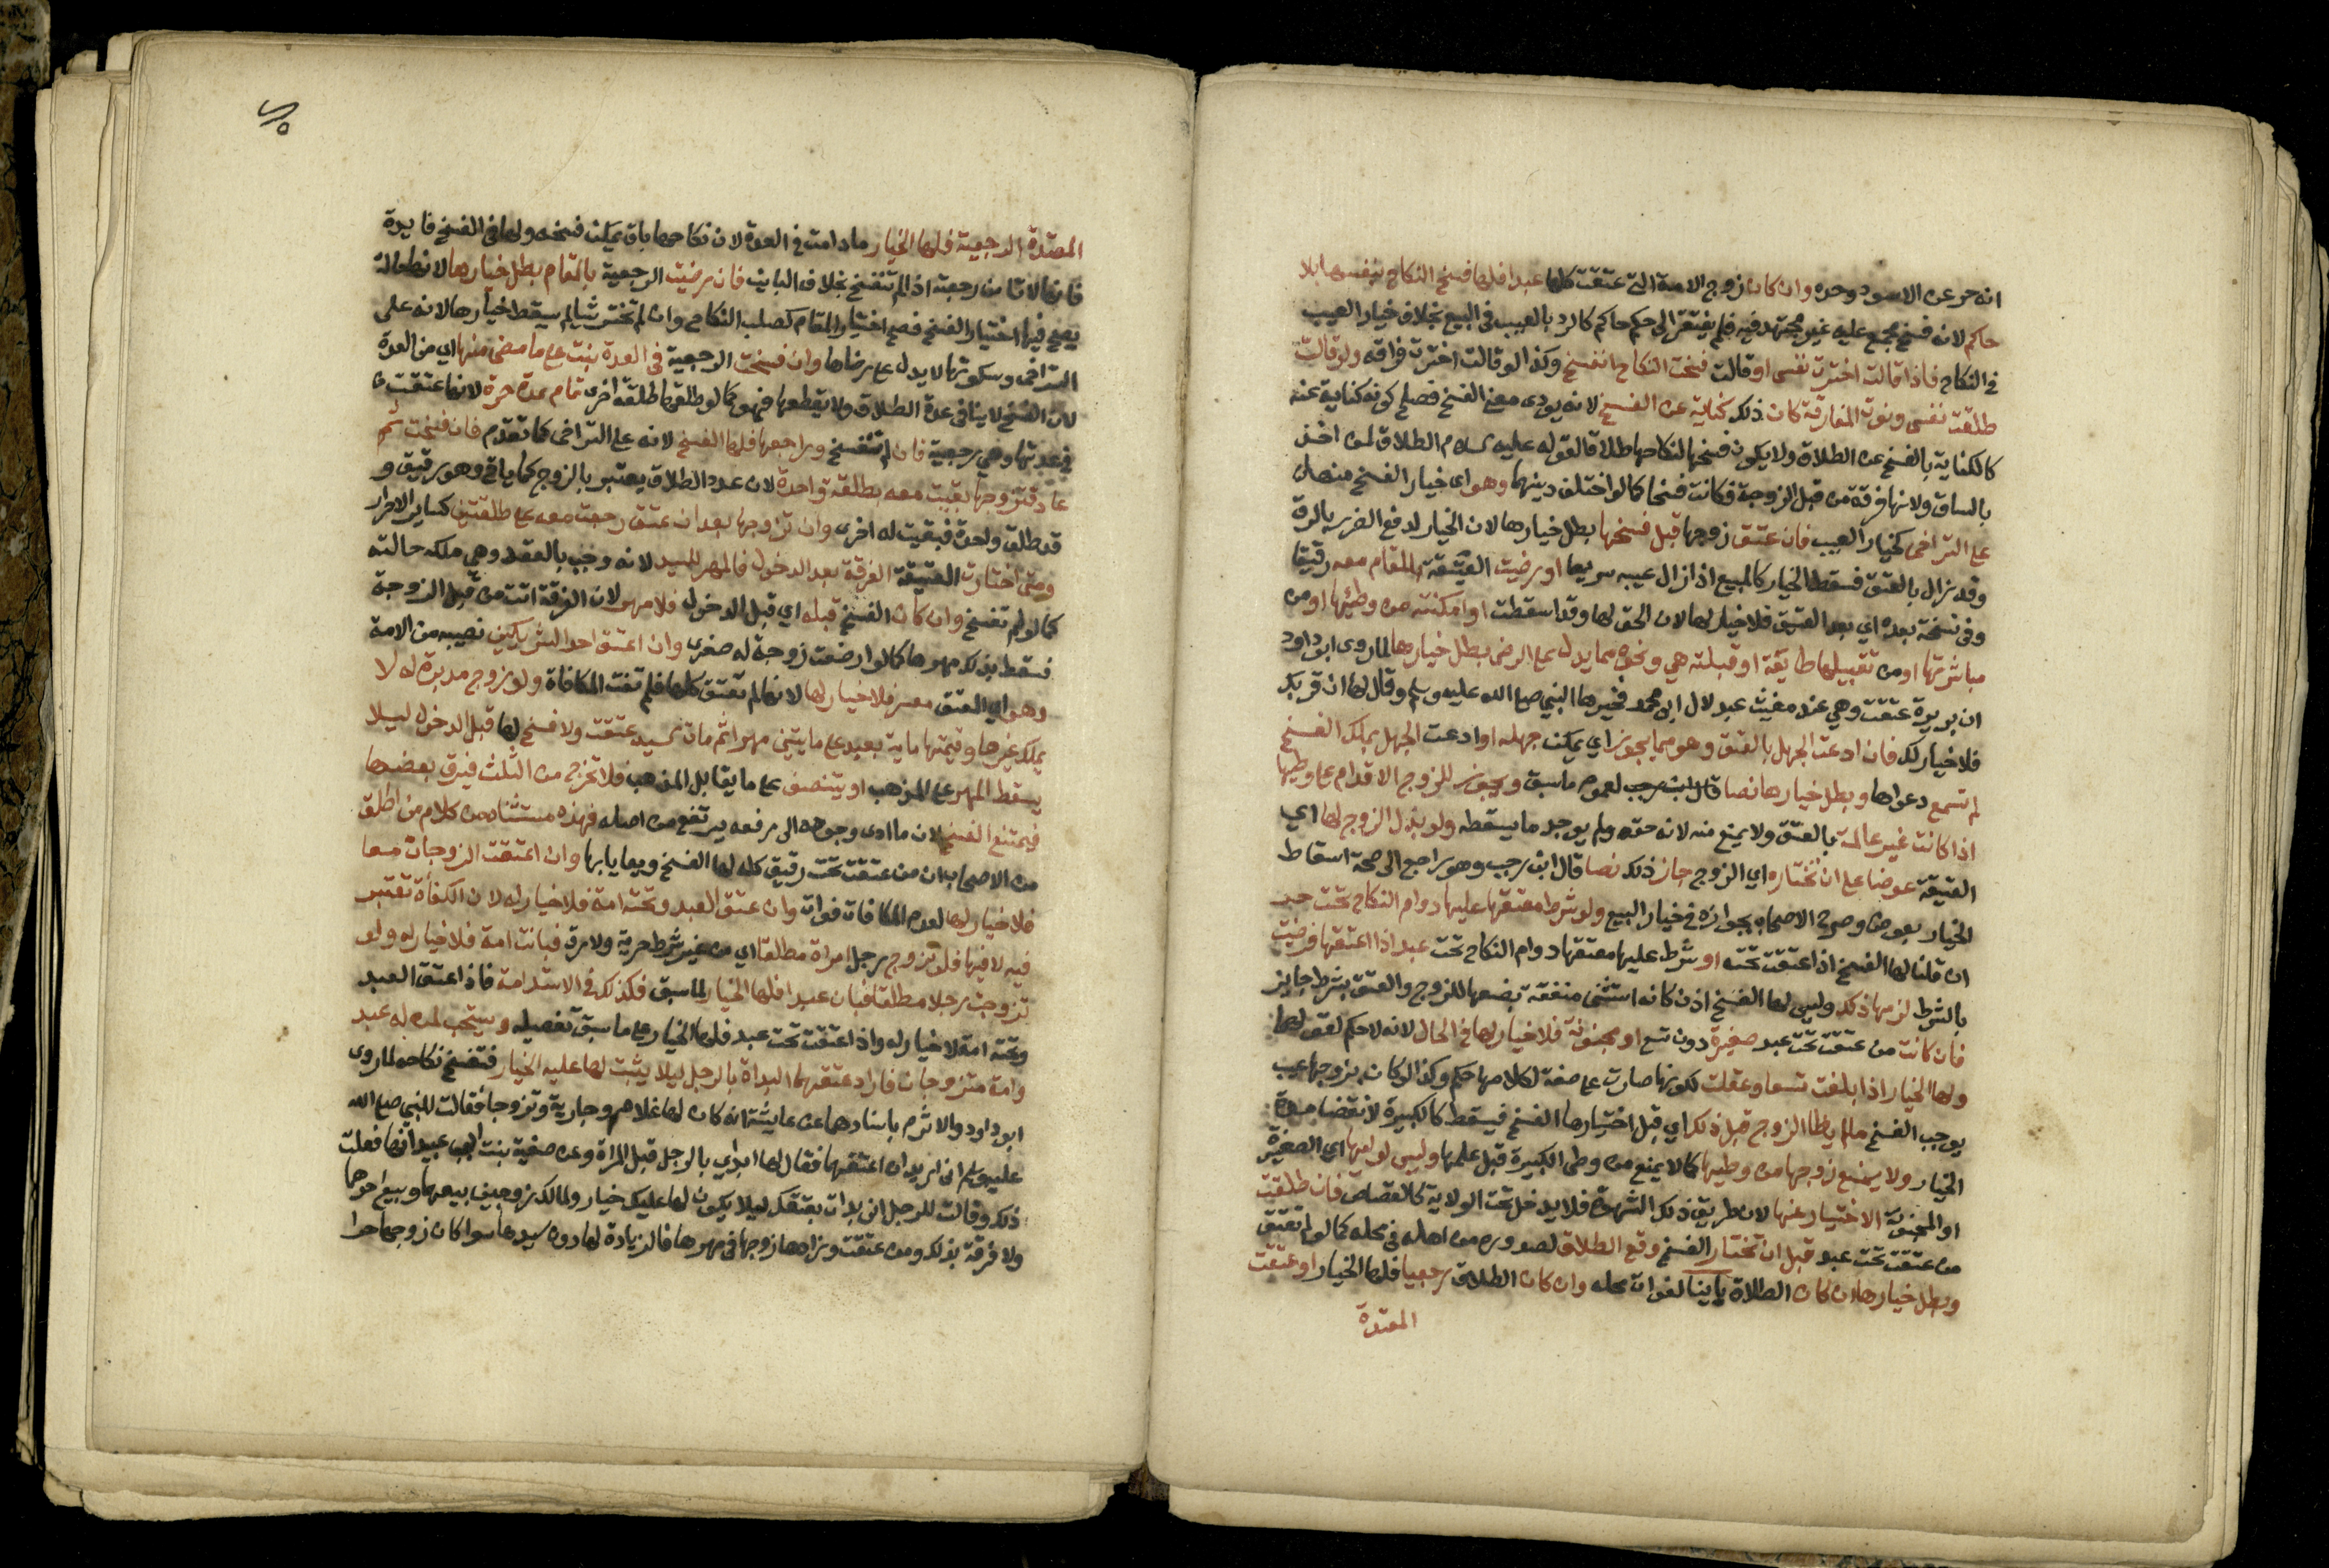 انه حر عن الاسود وحده وان كان زوج الامة التى عتقت كلها عبدا فلها فسخ النكاح بنفسها بلا
حاكم لانه فسخ مجمع عليه غير مجتهد فيه فلم يفتقر الى حكم حاكم كالرد بالعيب فى البيع بخلاف خيار العيب
فى النكاح فاذا قالت اخترت نفسى او قالت فسخت النكاح انفسخ وكذا لو قالت اخترت فراقه ولو قالت
طلقت نفسى ونوت المفارقة كان ذلك كناية عن الفسخ لانه يودى معنى الفسخ فصلح كونه كناية عنه
كالكناية بالفسخ عن الطلاق ولا يكون فسخها لنكاحها طلاقا لقوله عليه السلام الطلاق لمن اخذ
بالساق ولانها فرقة من قبل الزوجة فكانت فسخا كما لو اختلف دينهما وهو اى خيار الفسخ
على التراخى كخيار العيب فان عتق زوجها قبل فسخها بطل خيارها لان الخيار لدفع الضرر بالرق
وقد زال بالعتق فسقط الخيار كالمبيع اذا زال عيبه سريعا او رضيت العتيقة بالمقام معه رقيقا
وفى نسخة بعده اي بعد العتق فلا خيار لها لان الحق لها وقد اسقطت او امكنته من وطيها او من
مباشرتها او من تقبيلها طايعة او قبلته هي ونحوه مما يدل على الرضى بطل خيارها لما روى ابو داود
ان بريرة عتقت وهي عند مغيث عبد لال ابى احمد فخيرها النبي صلى الله عليه وسلم وقال لها ان قربك
فلا خيار لك فان ادعت الجهل بالعتق وهو مما يجوز اي يمكن جهله او ادعت الجهل بملك الفسخ
لم تسمع دعواها وبطل خيارها نصا لعموم ما سبق ويجوز للزوج الاقدام على وطيها
اذا كانت غير عالمة بالعتق ولا يمنع منه لانه حقه ولم يوجد ما يسقطه ولو بذل الزوج لها اي
العتيقة عوضا على ان تختاره اي الزوج جاز ذلك نصا قال ابن رجب وهو راجع الى صحة اسقاط
الخيار بعوض وصرح الاصحاب بجوازه فى خيار البيع ولو شرط معتقها عليها دوام النكاح تحت حر
ان قلنا لها الفسخ اذا عتقت تحته او شرط عليها معتقها دوام النكاح تحت عبد اذا اعتقها فرضيت
بالشرط لزمها ذلك وليس لها الفسخ اذن كانه استثنى منفعة بضعها للزوج والعتق بشرط جايز
فان كانت من عتقت تحت عبد صغيرة دون تسع او مجنونة فلا خيار لها فى الحال لانه لا حكم لقولها
ولها الخيار اذا بلغت تسعا وعقلت لكونها صارت على صفة لكلامها حكم وكذا لو كان بزوجها عيب
يوجب الفسخ ما لم يطا الزوج قبل ذلك اي قبل اختيارها الفسخ فيسقط كالكبيرة لانقضا مدة
الخيار ولا يمنع زوجها من وطيها كما لا يمنع من وطى الكبيرة قبل علمها وليس لوليها اى الصغيرة
او المجنونة الاختيار عنها لان طريق ذلك الشهوة فلا يدخل تحت الولاية كالقصاص فان طلقت
من عتقت تحت عبد قبل ان تختار الفسخ وقع الطلاق لصدوره من اهله فى محله كما لو لم تعتق
وبطل خيارها ان كان الطلاق باينا لفوات محله وان كان الطلاق رجعيا فلها الخيار او عتقت
المعتدة
٥
المعتدة الرجعية فلها الخيار ما دامت فى العدة لان نكاحها باق يمكن فسخه ولها فى الفسخ فايدة
فانها لا تامن رجعته اذا لم تفسخ بخلاف الباين فان رضيت الرجعية بالمقام بطل خيارها لانها حالة
يصح فيها اختيار الفسخ فصح اختيار المقام كصلب النكاح وان لم تختر شيا لم يسقط خيارها لانه على
التراخى وسكوتها لا يدل على رضاها وان فسخت الرجعية فى العدة بنت على ما مضى منها اي من العدة
لان الفسخ لا ينافى عدة الطلاق ولا يقطعها فهو كما لو طلقها طلقة اخرى تمام عدة حرة لانها عتقت
فى عدتها وهي رجعية فان لم تفسخ وراجعها فلها الفسخ لانه على التراخى كما تقدم فان فسخت ثم
عاد فتزوجها بقيت معه بطلقة واحدة لان عدد الطلاق يعتبر بالزوج كما ياتى وهو رقيق و
قد طلق واحدة فبقيت له اخرى وان تزوجها بعد ان عتق رجعت معه على طلقتين كساير الاحرار
ومتى اختارت العتيقة الفرقة بعد الدخول فالمهر للسيد لانه وجب بالعقد وهي ملكه حالته
كما لو لم تفسخ وان كان الفسخ قبله اي قبل الدخول فلا مهر لان الفرقة اتت من قبل الزوجة
فسقط بذلك مهرها كما لو ارضعت زوجة له صغرى وان اعتق احد الشريكين نصيبه من الامة
وهو اي المعتق معسر فلا خيار لها لانها لم تعتق كلها فلم تفت المكافاة ولو زوج مدبرة له لا
يملك غيرها وقيمتها ماية بعبد على مايتين مهرا ثم مات السيد عتقت ولا فسخ لها قبل الدخول ليلا
يسقط المهر على المذهب او يتنصف على ما يقابل المذهب فلا تخرج من الثلث فيرق بعضها
فيمتنع الفسخ لان ما ادى وجوده الى رفعه يرتفع من اصله فهذه مستثناة من كلام من اطلق
من الاصحاب ان من عتقت تحت رقيق كله لها الفسخ ويعايا بها وان اعتقت الزوجان معا
فلا خيار لها لعدم المكافات فوات وان عتق العبد وتحته امة فلا خيار له لان الكفاة تعتبر
فيه لا فيها فلو تزوج رجل امراة مطلقا اي من غير شرط حرية ولا رق فبانت امة فلا خيار له ولو
تزوجت رجلا مطلقا فبان عبدا فلها الخيار لما سبق فكذلك فى الاستدامة فاذا عتق العبد
وتحته امة لا خيار له واذا عتقت تحت عبد فلها الخيار على ما سبق تفصيله ويستحب لمن له عبد
وامة متزوجان فاراد عتقهما البداة بالرجل ليلا يثبت لها عليه الخيار فتفسخ نكاحه لما روى
ابو داود والاثرم باسنادهما عن عايشة انه كان لها غلام وجارية وتزوجا فقالت للنبي صلى الله
عليه وسلم انى اريد ان اعتقهما فقال لها ابداي بالرجل قبل المراة وعن صفية بنت ابى عبيد انها فعلت
ذلك وقالت للرجل انى بدات بعتقك ليلا يكون لها عليك خيار ولمالك زوجين بيعهما وبيع احدهما
ولا فرقة بذلك ومن عتقت وزادها زوجها فى مهرها فالزيادة لها دون سيدها سوا كان زوجها حرا